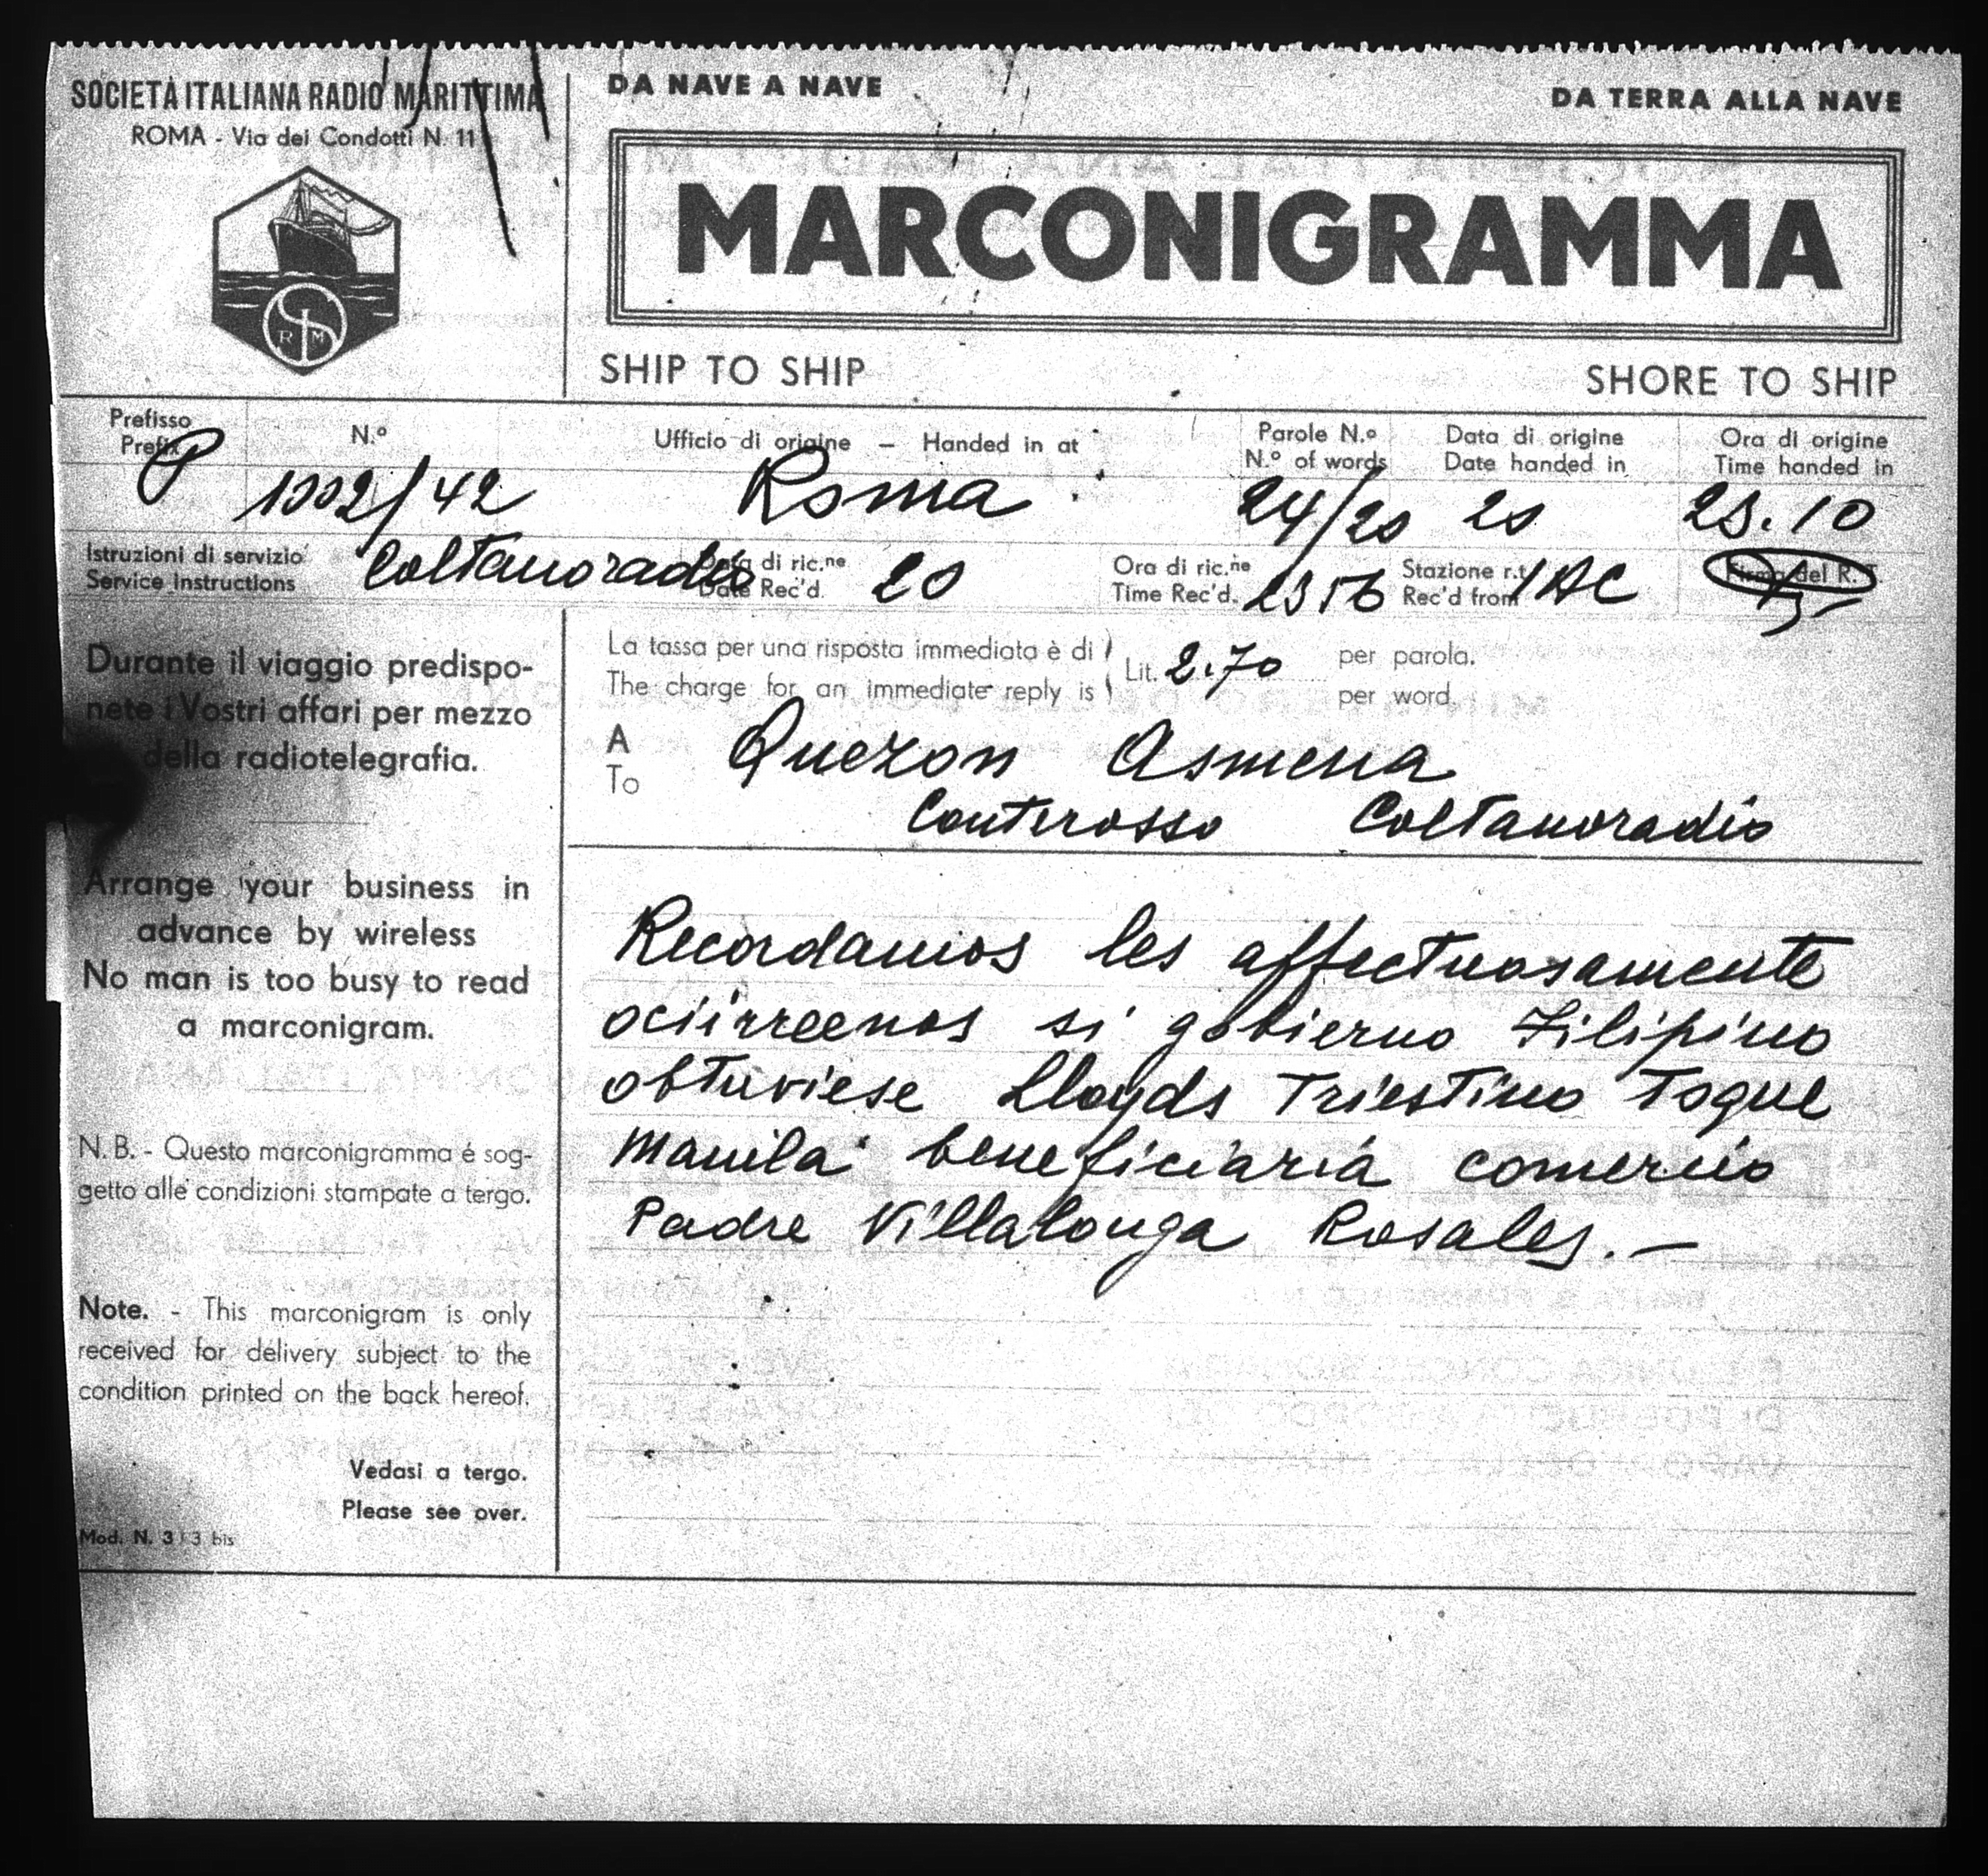 SOCIETÀ ITALIANA RADIO MARITTIMA
ROMA - Via dei Condotti N. 11
R M
DA NAVE A NAVE
DA TERRA ALLA NAVE
MARCONIGRAMMA
SHIP TO SHIP
SHORE TO SHIP
Prefisso
Prefix
P
N.º
1002/42
Ufficio di origine — Handed in at
Roma
Parole N.º
N.º of words
24/20
Data di origine
Date handed in
20
Ora di origine
Time handed in
23.10
Istruzioni di servizio
Service Instructions
Coltanoradio
Data di ric.ne
Date Rec'd.
20
Ora di ric.ne
Time Rec'd.
2356
Stazione r.t.
Rec'd from
IAC
Firma del R.T.
Durante il viaggio predispo-
nete i Vostri affari per mezzo
della radiotelegrafia.
Arrange your business in
advance by wireless
No man is too busy to read
a marconigram.
N. B. - Questo marconigramma é sog-
getto alle condizioni stampate a tergo.
Note. - This marconigram is only
received for delivery subject to the
condition printed on the back hereof.
Vedasi a tergo.
Please see over.
Mod. N. 3 / 3 bis
La tassa per una risposta immediata è di
The charge for an immediate reply is
Lit. 2.70
per parola.
per word.
A
To
Quezon Osmena
Conterosso Coltanoradio
Recordamos les affectuosamente
ociirreenos si gobierno Filipino
obtuviese Lloyds Triestino toque
Manila beneficiaria comercio
Padre Villalonga Rosales.—